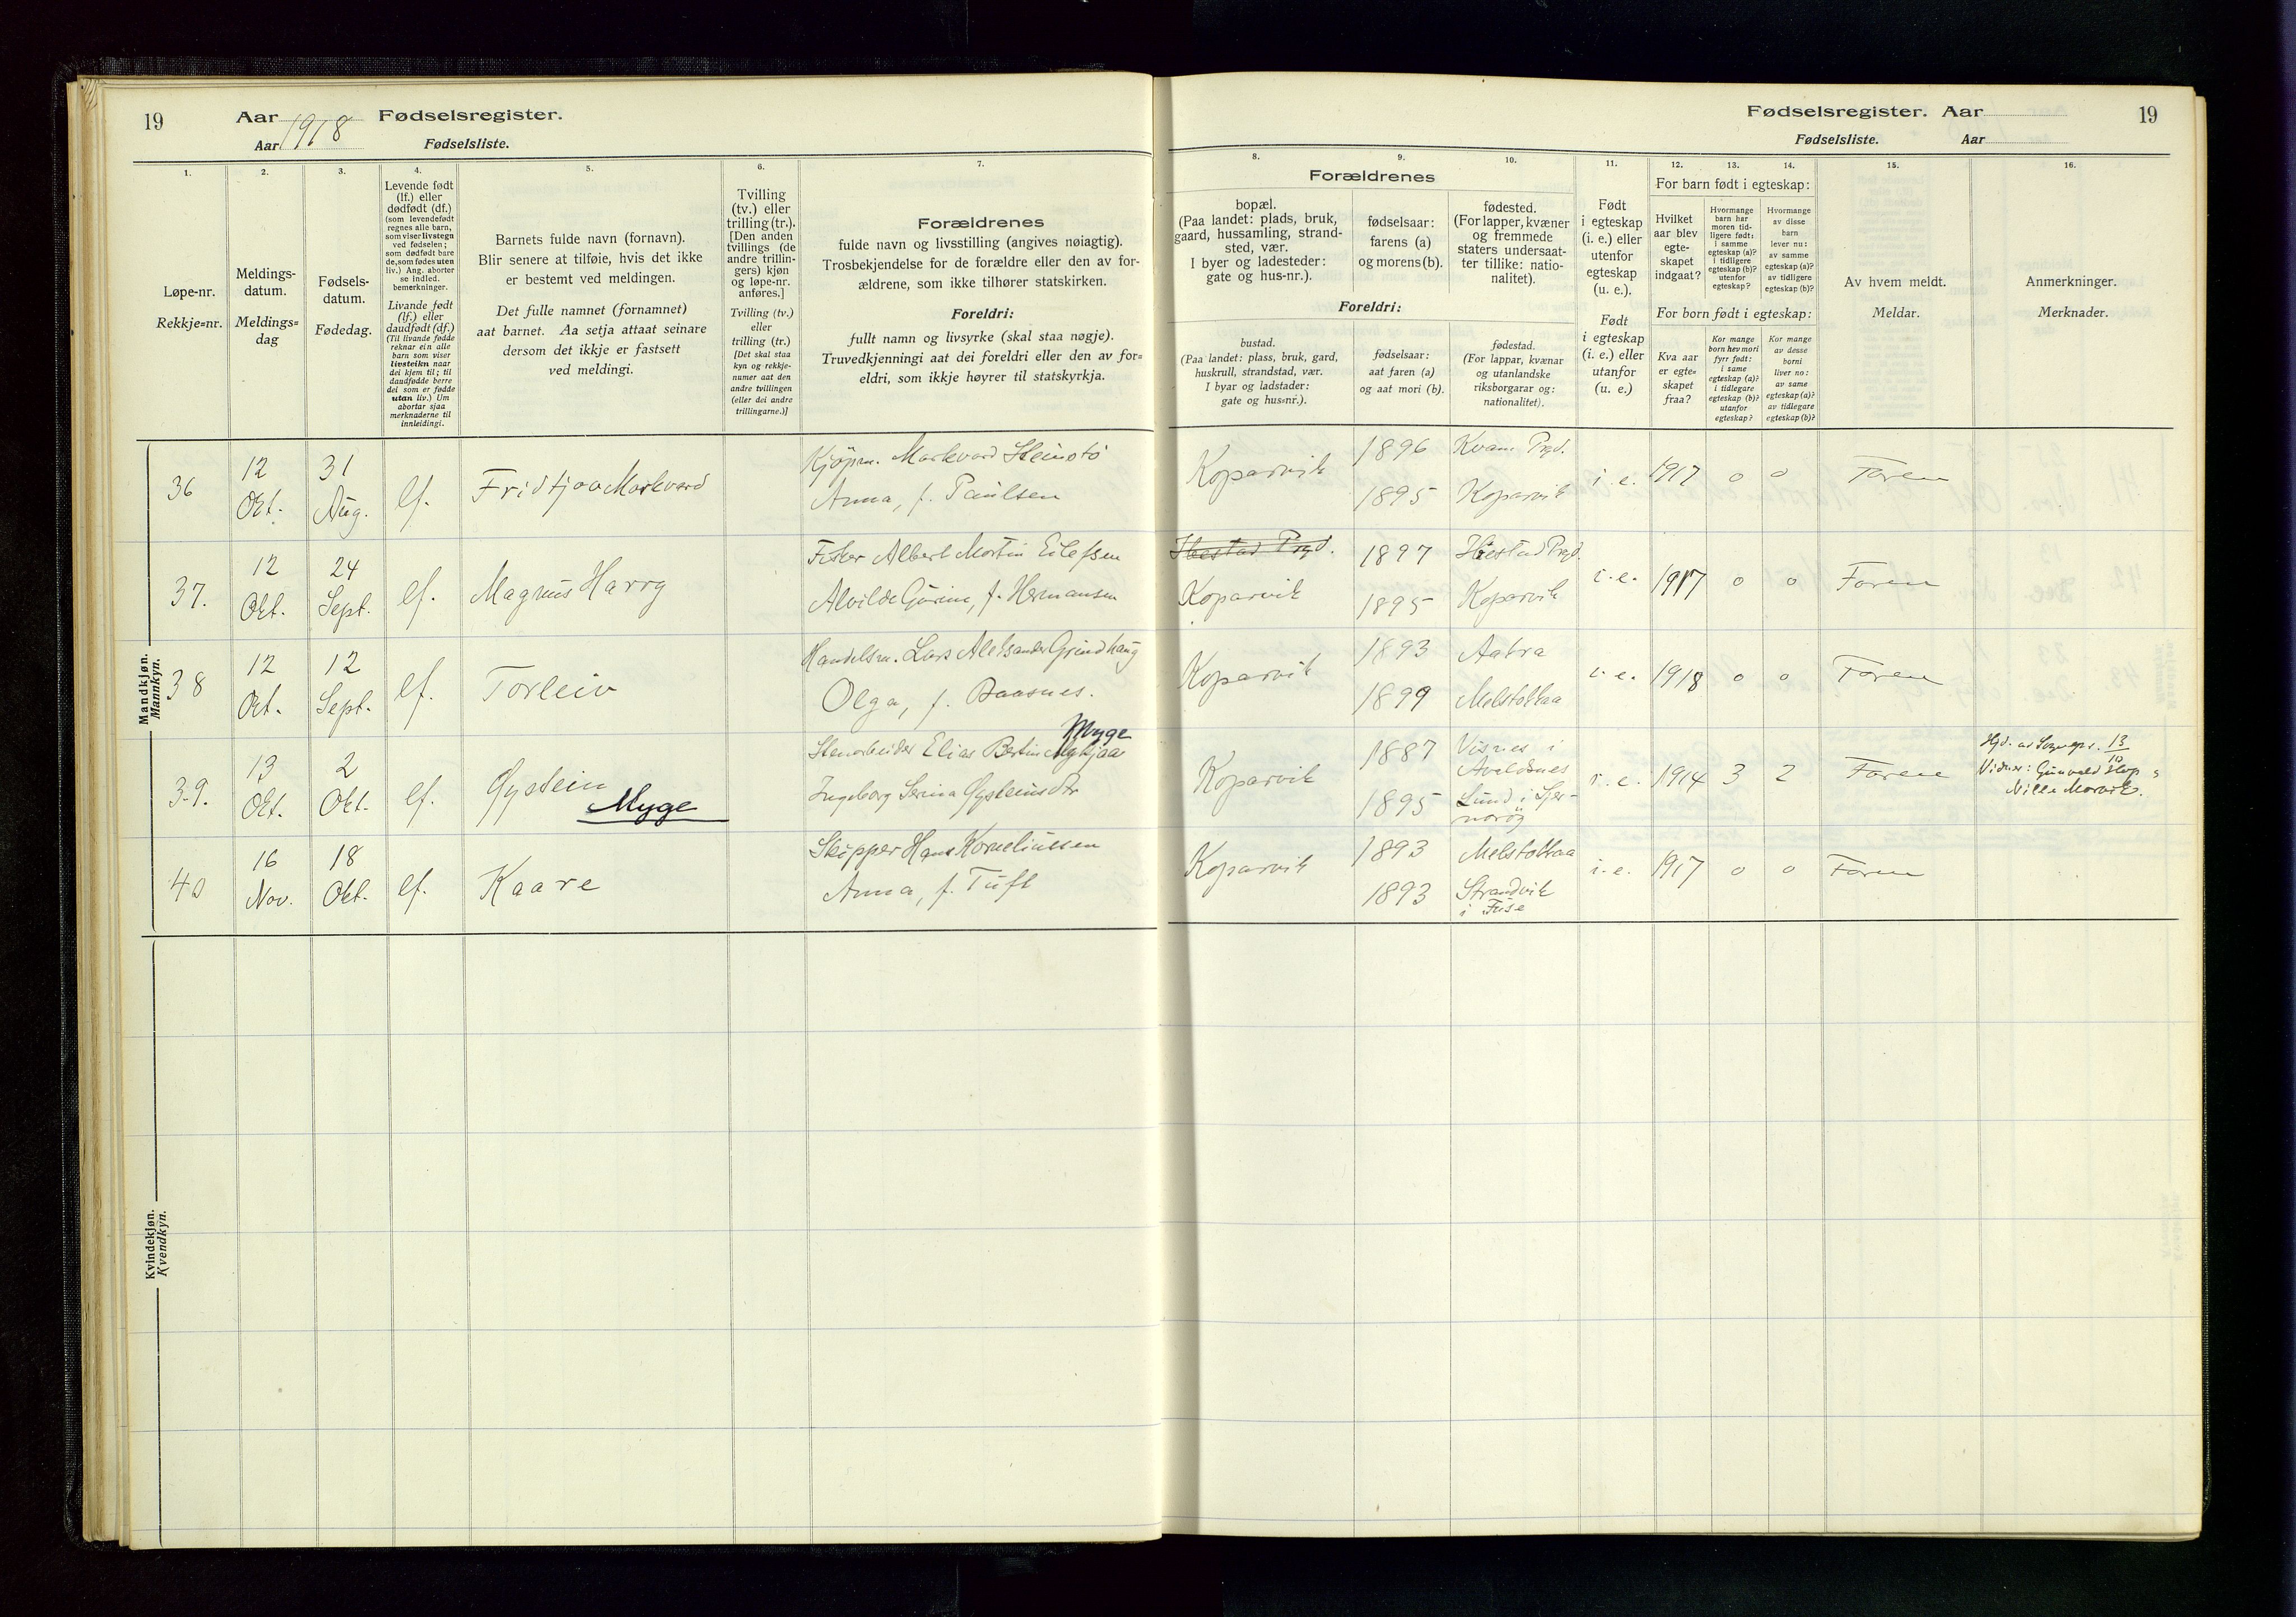 19
Aar 1918 Fødselsregister.
Aar Fødselsliste.
1.
2.
3.
4.
5.
6.
7.
Løpe-nr.
Rekkje=nr.
Meldings-
datum.
Meldings=
dag
Fødsels-
datum.
Fødedag.
Levende født
(lf.) eller
dødfødt (df.)
(som levendefødt
regnes alle barn,
som viser livstegn
ved fødselen;
som dødfødt bare
de, som fødes uten
liv.) Ang. aborter
se indled.
bemerkninger.
Livande født
(lf.) eller
daudfødt (df.)
(Til livande fødde
reknar ein alle
barn som viser
livsteikn naar
dei kjem til; til
daudfødde berre
dei som er fødde
utan liv.) Um
abortar sjaa
merknaderne til
innleidingi.
Barnets fulde navn (fornavn).
Blir senere at tilføie, hvis det ikke
er bestemt ved meldingen.
Det fulle namnet (fornamnet)
aat barnet. Aa setja attaat seinare
dersom det ikkje er fastsett
ved meldingi.
Tvilling
(tv.) eller
trilling (tr.).
[Den anden
tvillings (de
andre trillin-
gers) kjøn
og løpe-nr.
anføres.]
Tvilling (tv.)
eller
trilling (tr.)
[Det skal staa
kyn og rekkje-
numer aat den
andre tvillingen
(eller dei andre
trillingarne.)]
Forældrenes
fulde navn og livsstilling (angives nøiagtig).
Trosbekjendelse for de forældre eller den av for-
ældrene, som ikke tilhører statskirken.
Foreldri:
fullt namn og livsyrke (skal staa nøgje).
Truvedkjenningi aat dei foreldri eller den av for=
eldri, som ikkje høyrer til statskyrkja.
Mandkjøn.
Mannkyn.
36
12
Okt.
31
Aug.
lf.
Fridtjov Markvard
Kjøpm. Markvard Steinstø
Anna, f. Paulsen
37.
12
Okt.
24
Sept.
lf.
Magnus Harry
Fisker Albert Martin Eilefsen
Alvilde Gurine, f. Hermansen
38
12
Okt.
12
Sept.
lf.
Torleiv
Handelsm. Lars Aleksander Grindhaug
Olga, f. Baasnes.
39.
13
Okt.
2
Okt.
lf.
Øystein
Myge
Myge
Stenarbeider Elias Bertin
Ingeborg Serina Øysteinsdtr
40
16
Nov.
18
Okt.
lf.
Kaare
Skipper Hans Korneliussen
Anna, f. Tuft
Kvindekjøn.
Kvendkyn.
Fødselsregister. Aar
19
Fødselsliste. Aar
8.
9.
10.
11.
12.
13.
14.
15.
16.
Forældrenes
bopæl.
(Paa landet: plads, bruk,
gaard, hussamling, strand-
sted, vær.
I byer og ladesteder:
gate og hus-nr.).
fødselsaar:
farens (a)
og morens (b).
fødested.
(For lapper, kvæner
og fremmede
staters undersaat-
ter tillike: natio-
nalitet).
Foreldri:
bustad.
(Paa landet: plass, bruk, gard,
huskrull, strandstad, vær.
I byar og ladstader:
gate og hus=nr.).
fødselsaar:
aat faren (a)
og aat mori (b).
fødestad.
(For lappar, kvænar
og utanlandske
riksborgarar og:
nationalitet).
Født
i egteskap
(i. e.) eller
utenfor
egteskap
(u. e.).
Født
i egteskap
(i. e.) eller
utanfor
(u. e.)
For barn født i egteskap:
Hvilket
aar blev
egte-
skapet
indgaat?
Hvormange
barn har
moren tid-
ligere født:
i samme
egteskap (a)?
i tidligere
egteskap (b)?
utenfor
egteskap?
Hvormange
av disse
barn
lever nu:
av samme
egteskap (a)?
av tidligere
egteskap (b)?
For born født i egteskap:
Kva aar
er egte=
skapet
fraa?
Kor mange
born hev mori
fyrr født:
i same
egteskap (a)?
i tidlegare
egteskap (b)?
utanfor
egteskap?
Kor mange
av desse
borni
liver no:
av same
egteskap (a)?
av tidlegare
egteskap (b)?
Av hvem meldt.
Meldar.
Anmerkninger.
Merknader.
Koparvik
1896
1895
Kvam Prgd.
Koparvik
i. e.
1917
0
0
Faren
Ibestad Prgd.
Koparvik
1897
1895
Ibestad Prgd.
Koparvik
i. e.
1917
0
0
Faren
Koparvik
1893
1899
Aakra
Melstokkaa
i. e.
1918
0
0
Faren
Koparvik
1887
1895
Visnes i
Avaldsnes
Lund i Sjer-
narøy
i. e.
1914
3
2
Faren
Hjd. av Sogнepr. 13/10
Vidner: Gunvald Hop
Nille Marvik.
Koparvik
1893
1893
Melstokkaa
Strandvik
i Fuse
i. e.
1917
0
0
Faren